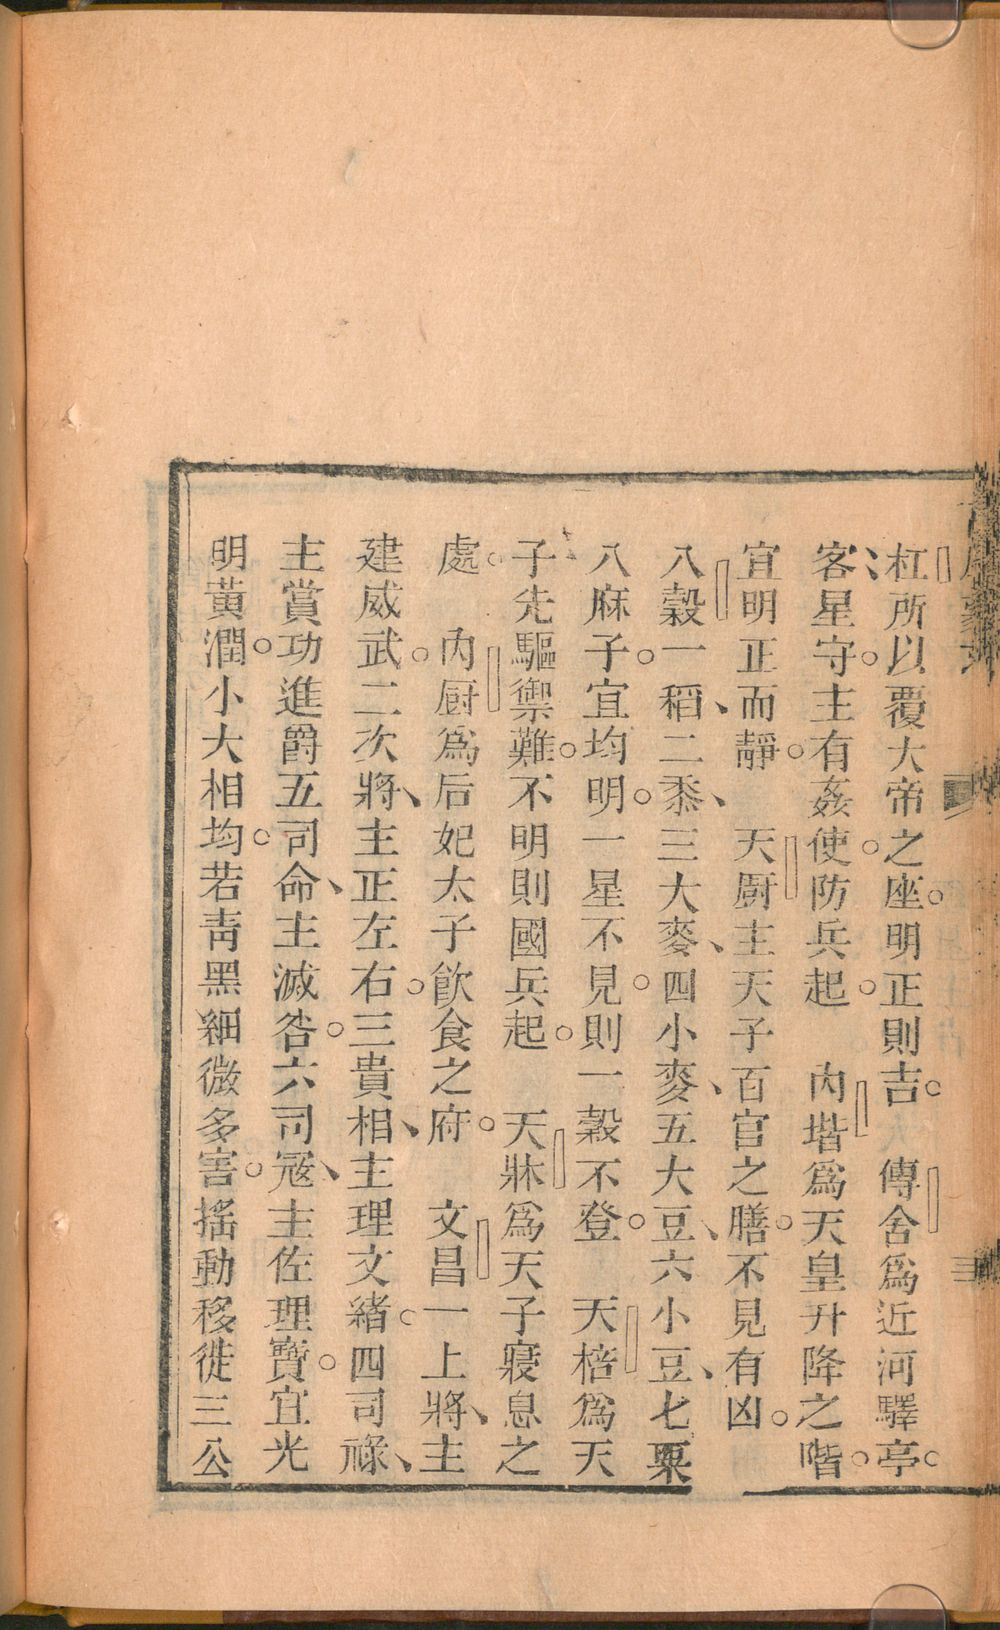 杠所以覆大帝之座。明正則吉。　傳舍爲近河驛亭。
客星守。主有姦使。防兵起。　内堦爲天皇升降之階。
宜明正而靜。　天厨主天子百官之膳。不見有凶。
八穀一稻、二黍、三大麥、四小麥、五大豆、六小豆、七粟
八麻子。宜均明。一星不見。則一穀不登。　天棓爲天
子先驅禦難。不明則國兵起。　天牀爲天子寢息之
處。　内厨爲后妃太子飲食之府。　文昌一上將、主
建威武。二次將、主正左右。三貴相、主理文緒。四司祿、
主賞功進爵五司命、主滅咎。六司冦、主佐理寶。宜光
明黃潤。小大相均。若靑黑細微多害。搖動移徙三公
三